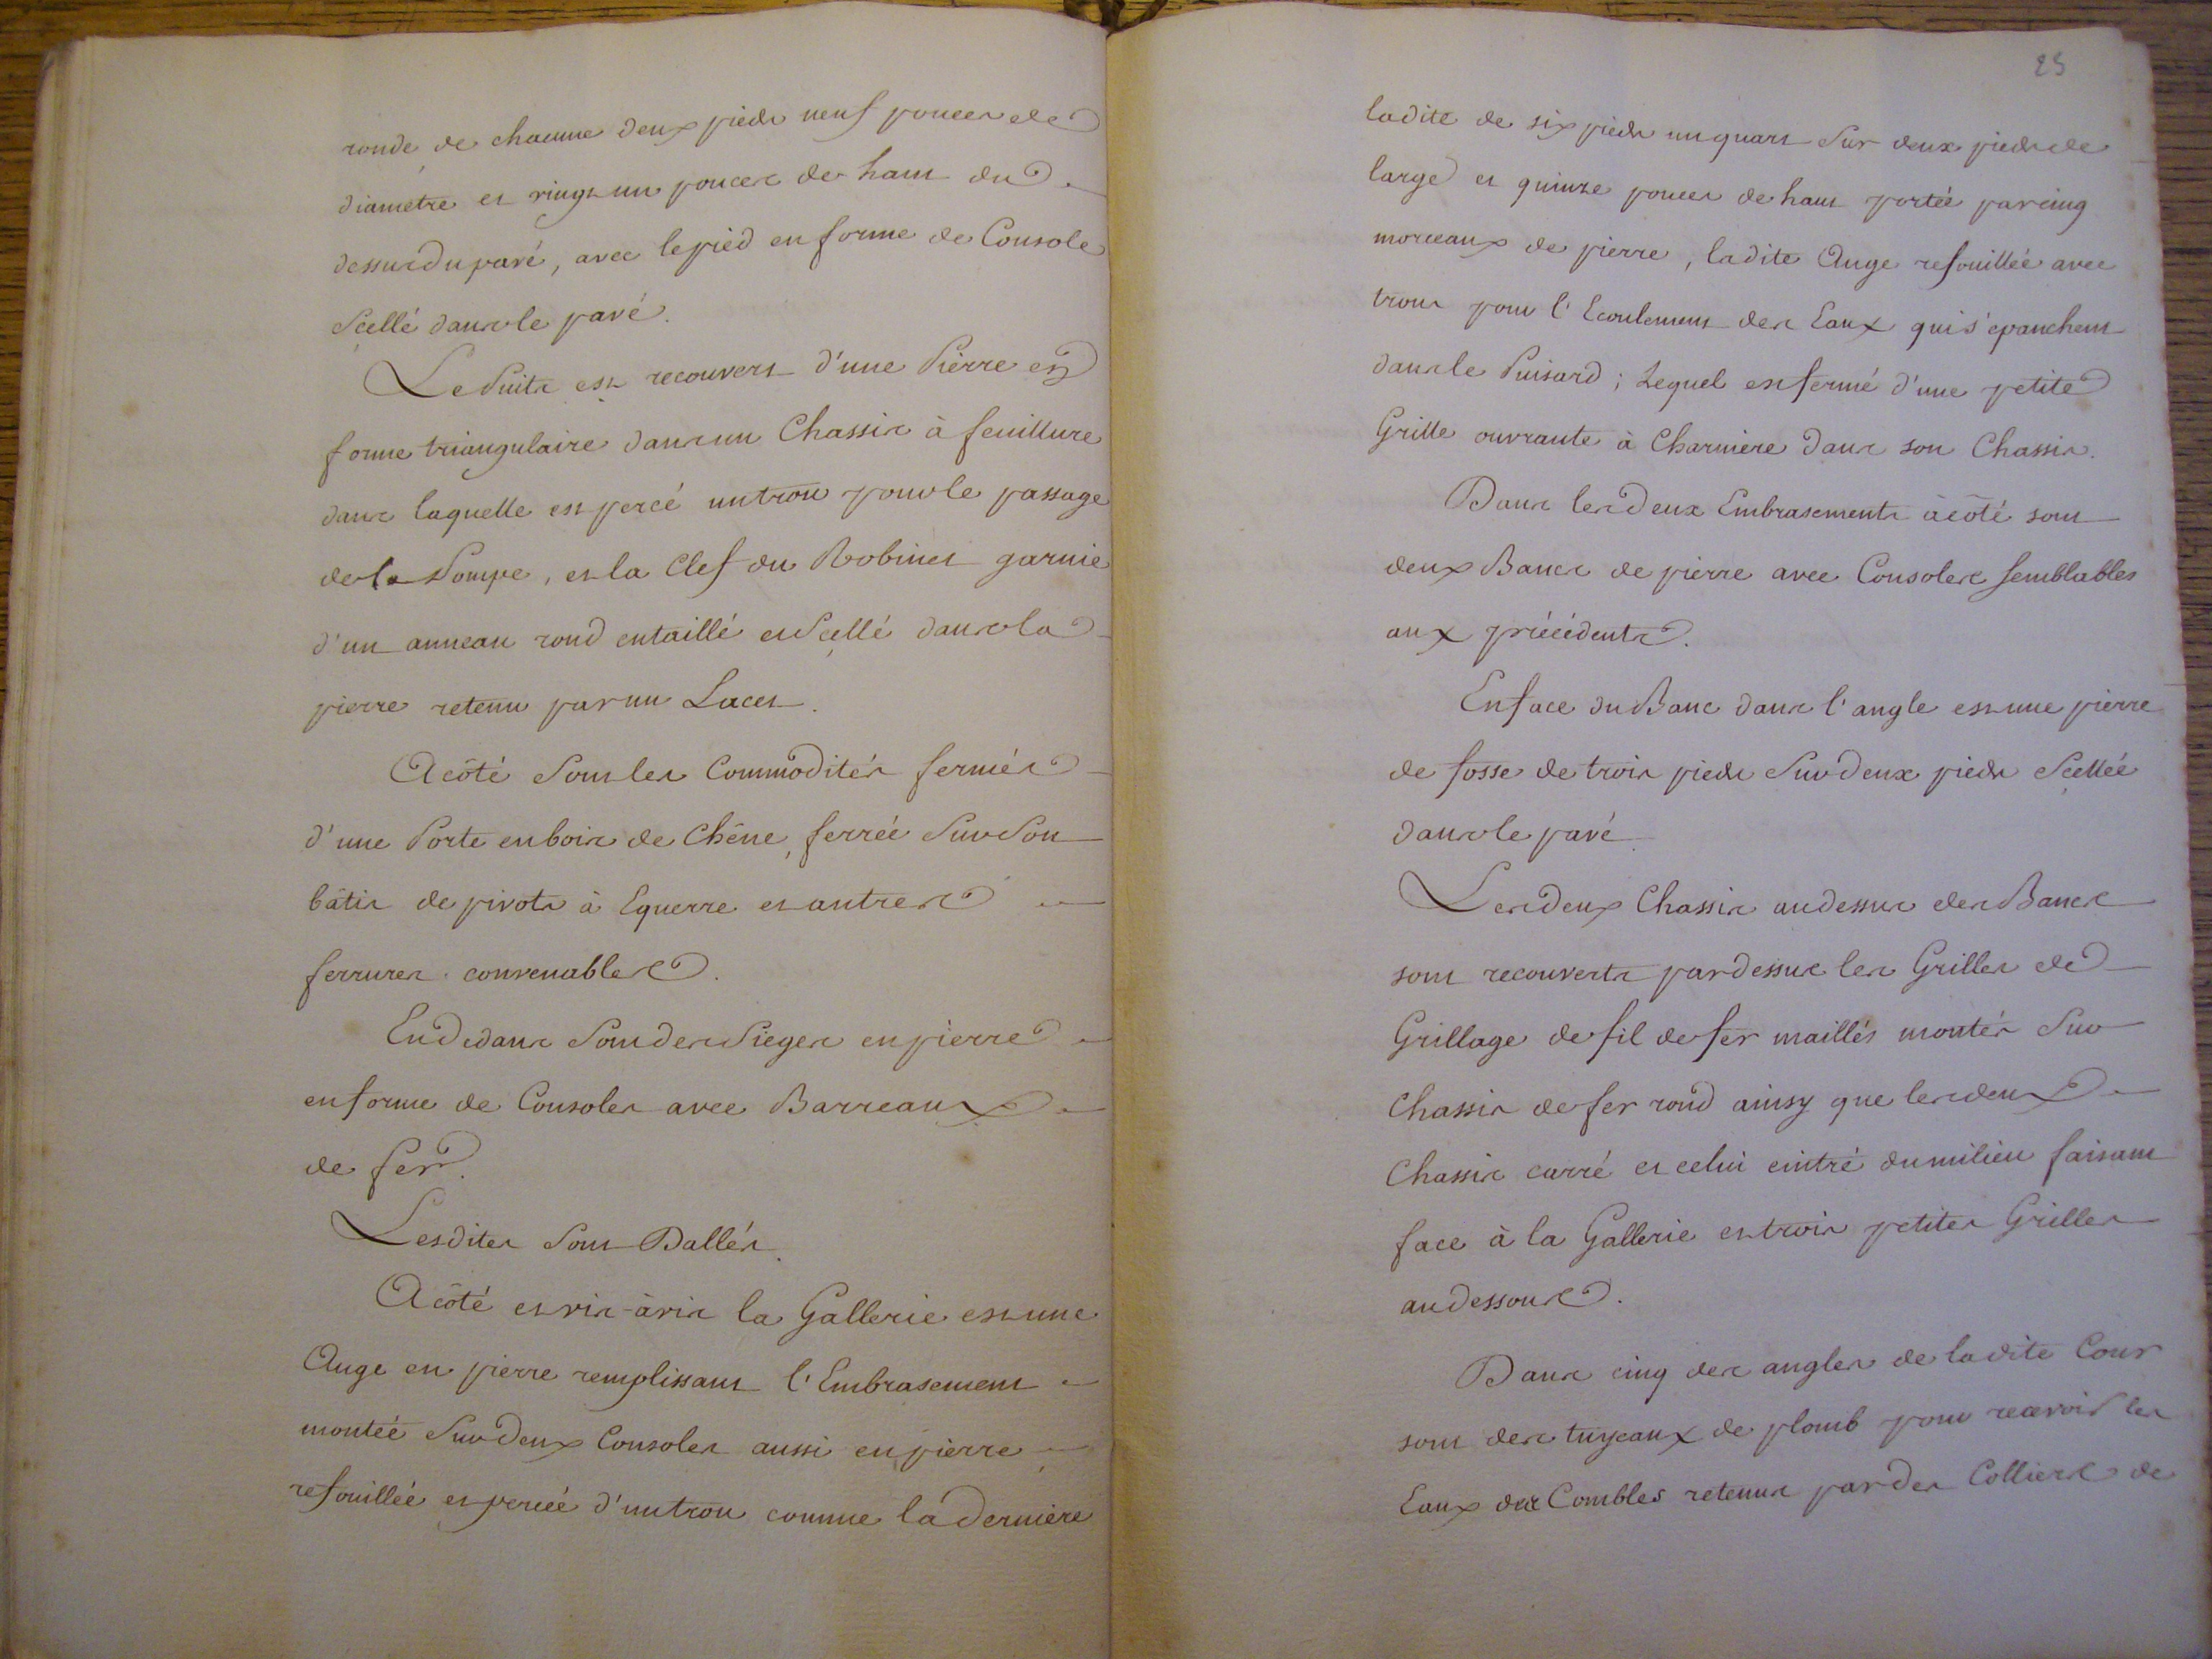 ronde de chacune deux pieds neuf pouces de
diametre et vingt un pouces de haut du
dessus du pavé, avec le pied en forme de Console
Scellé dans le pavé.
Le Puits est recouvert d'une Pierre en
forme triangulaire dans un Chassis à feuillure
dans laquelle est percé un trou pour le passage
de la Pompe, et la Clef du Robinet garnie
d'un anneau rond entaillé et Scellé dans la
pierre retenu par un Lacet.
A côté Sont les Commodités fermées
d'une Porte en bois de Chêne, ferrée Sur Son
bâtis de pivots à Equerre et autres
ferrures convenables.
En dedans Sont des Sieges en pierre
en forme de Consoles avec Barreaux
de fer.
Lesdites Sont Dallés.
A côté et vis-à vis la Gallerie est une
Auge en pierre remplissant l'Embrasement
montée Sur deux Consoles aussi en pierre
refouillée et percée d'un trou comme la derniere
25
ladite de six pieds un quart Sur deux pieds de
large et quinze pouces de haut portée par cinq
morceaux de pierre, ladite Auge refouillée avec
trous pour l'Ecoulement des Eaux qui s'epanchent
dans le Puisard; Lequel est fermé d'une petite
Grille ouvrante à Charniere dans son Chassis.
Dans les deux Embrasements à côté sont
deux Bancs de pierre avec Consoles semblables
aux précédents.
En face du Banc dans l'angle est une pierre
de fosse de trois pieds Sur deux pieds Scellée
dans le pavé
Les deux Chassis au dessus des Bancs
sont recouverts par dessus les Grilles de
Grillage de fil de fer maillés montés Sur
Chassis de fer rond ainsy que les deux
Chassis carré et celui cintré du milieu faisant
face à la Gallerie et trois petites Grilles
au dessous.
Dans cinq des angles de ladite Cour
sont des tuyeaux de plomb pour recevoir les
Eaux des Combles retenus par des Colliers de